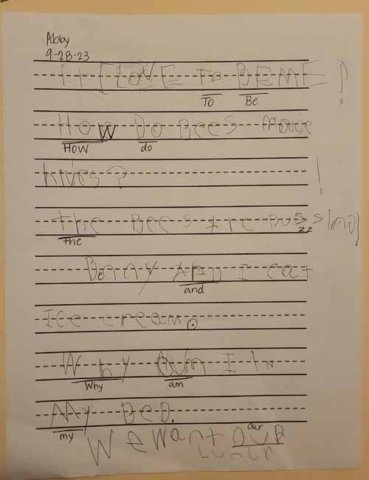 Abby
9-28-23
I LOVE To BEME!
To Be
How Do Bees Mace
How do
hives?
The Bees Are Bussing!
the zz
Danny AND I eat
and
Ice cream.
Why Am I In
Why am
My BeD.
my
We want our
our
lunch